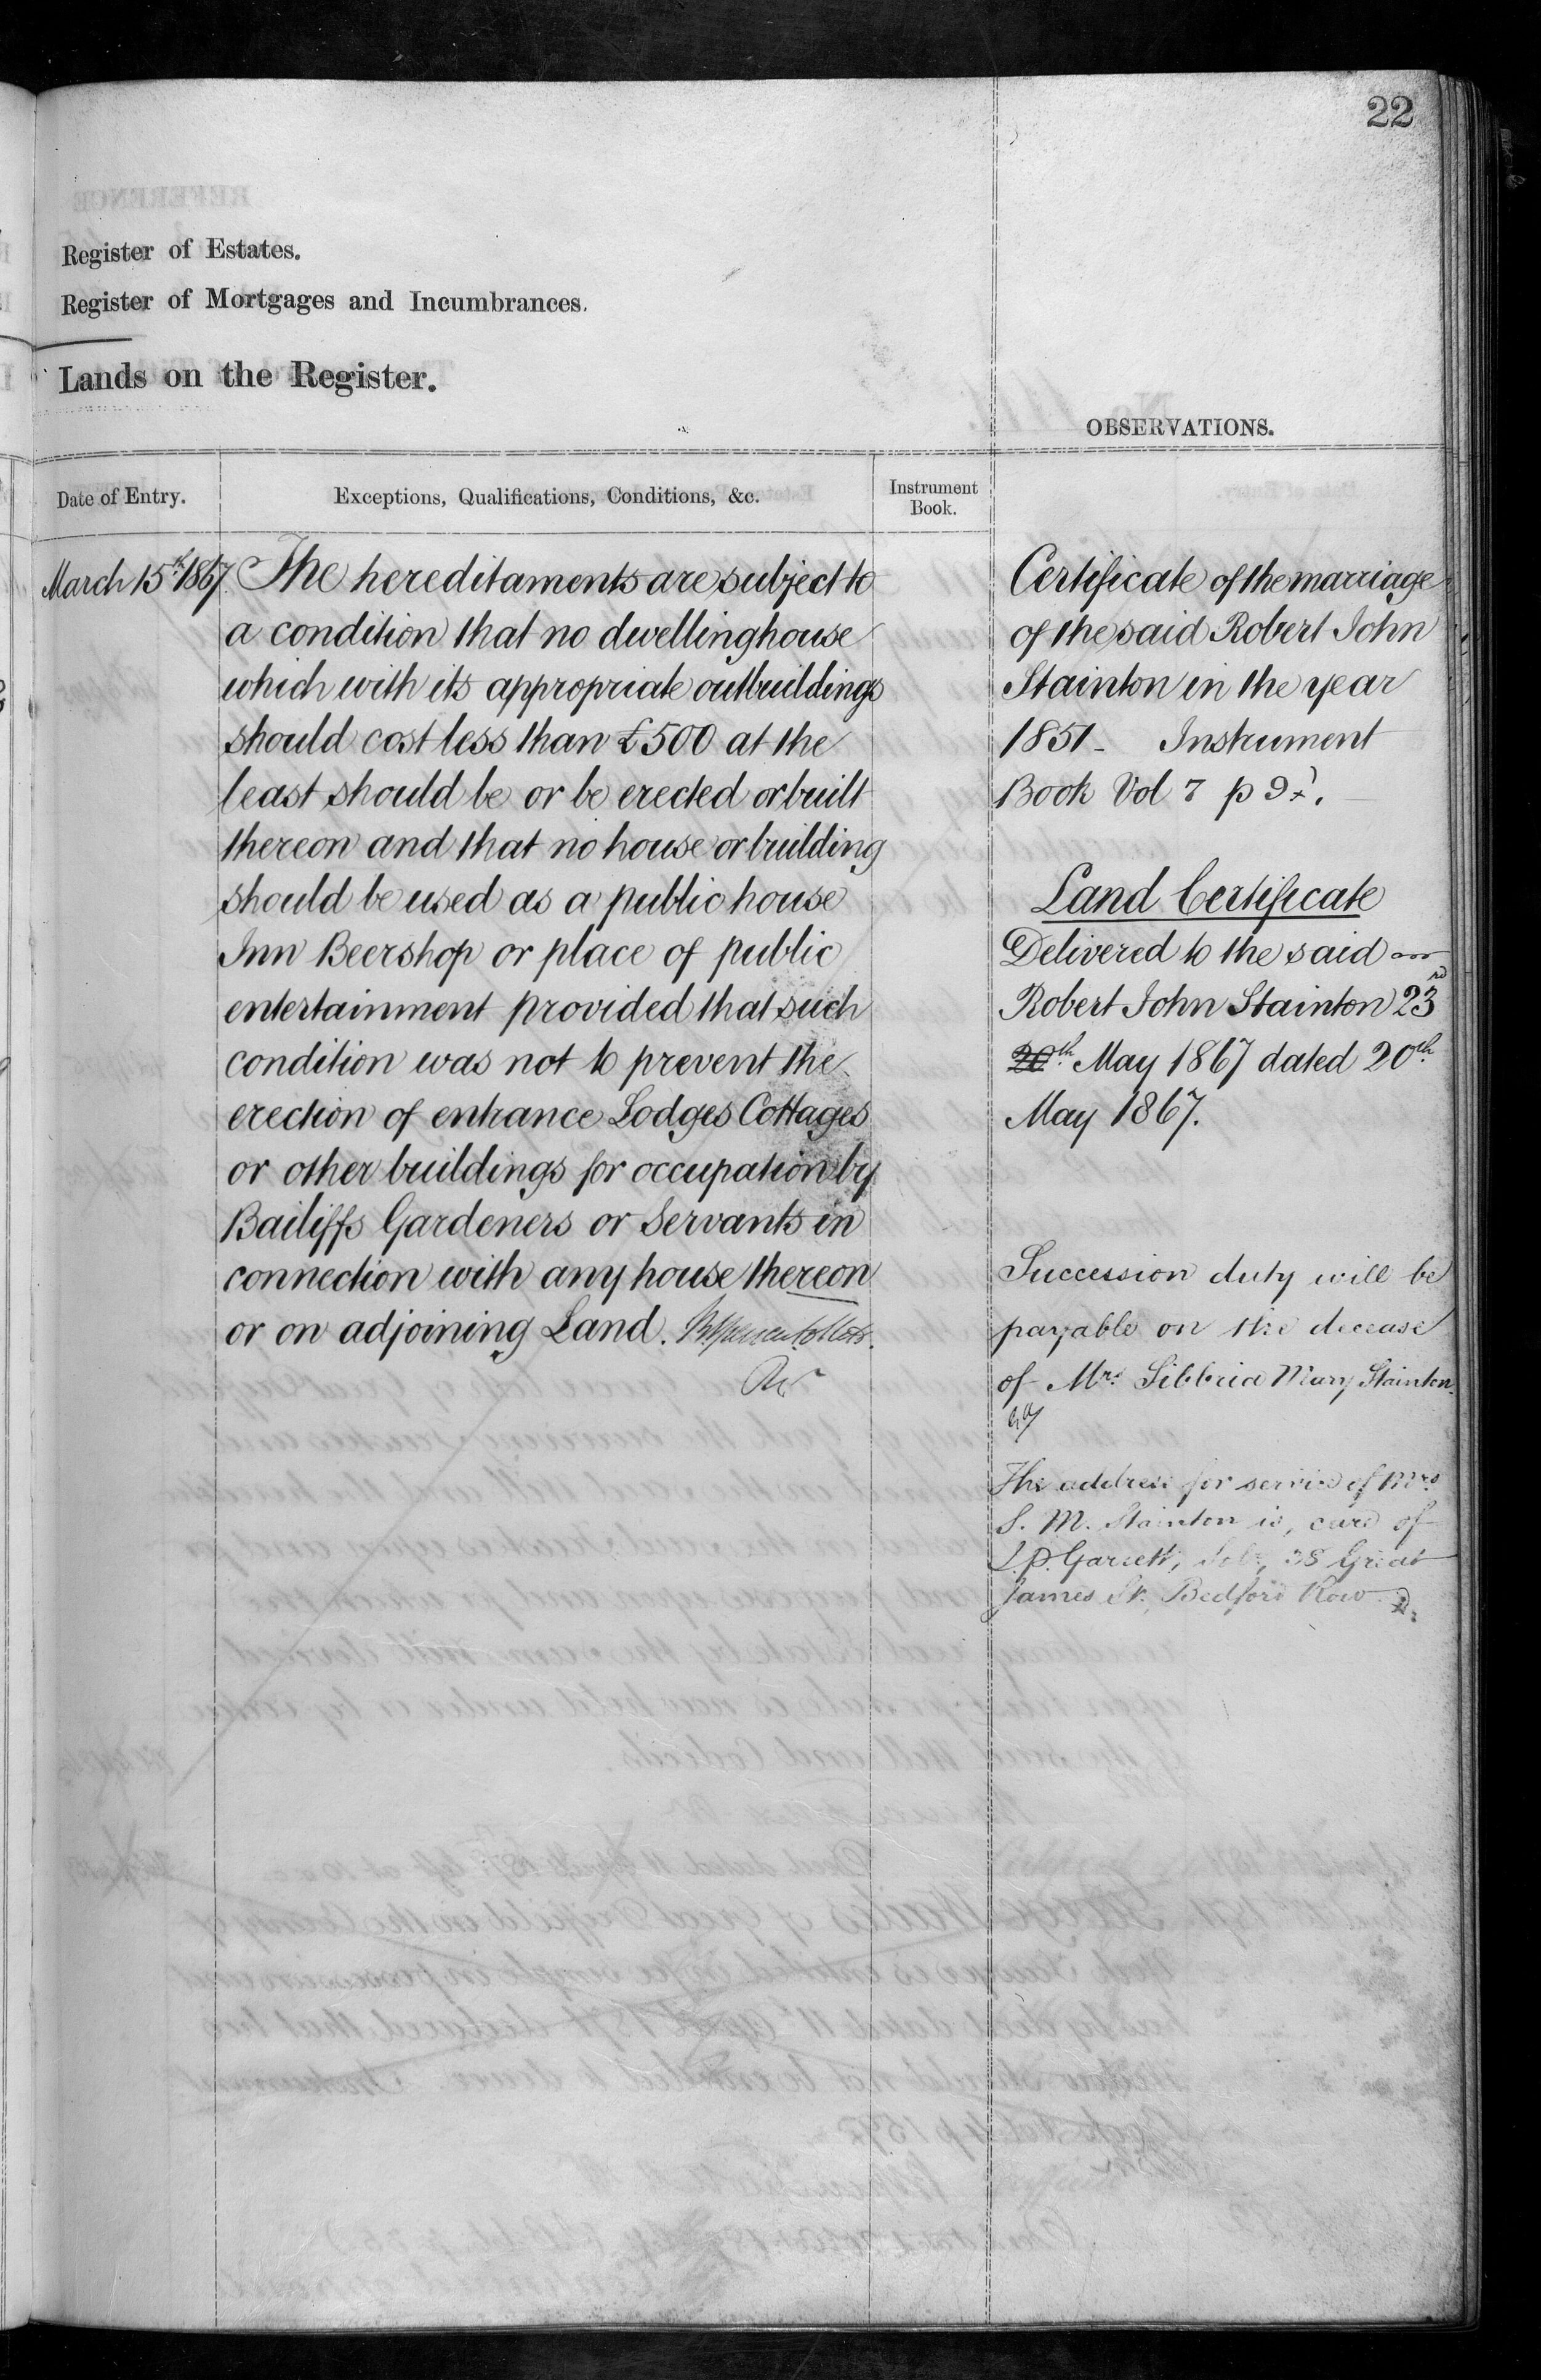 22
Register of Estates.
Register of Mortgages and Incumbrances.
Lands on the Register.
OBSERVATIONS.
Date of Entry.
Exceptions, Qualifications, Conditions, &c.
Instrument
Book.
March 15th 1867.
The hereditaments are subject to
a condition that no dwellinghouse
which with its appropriate outbuildings
should cost less than £500 at the
least should be or be erected or built
thereon and that no house or building
should be used as a public house
Inn Beershop or place of public
entertainment provided that such
condition was not to prevent the
erection of entrance Lodges Cottages
or other buildings for occupation by
Bailiffs Gardeners or Servants in
connection with any house thereon
or on adjoining Land.
Certificate of the marriage
of the said Robert John
Stainton in the year
1851 - Instrument
Book Vol 7 p
Land Certificate
Delivered to the said
Robert John Stainton 23rd
20th May 1867 dated 20th
May 1867.
Succession duty will be
payable on the decease
of Mrs. Sibbria Mary Stainton.
The address for service of Mrs
S. M. Stainton is, care of
Garrett, Solr, 38 Great
James St. Bedford Row